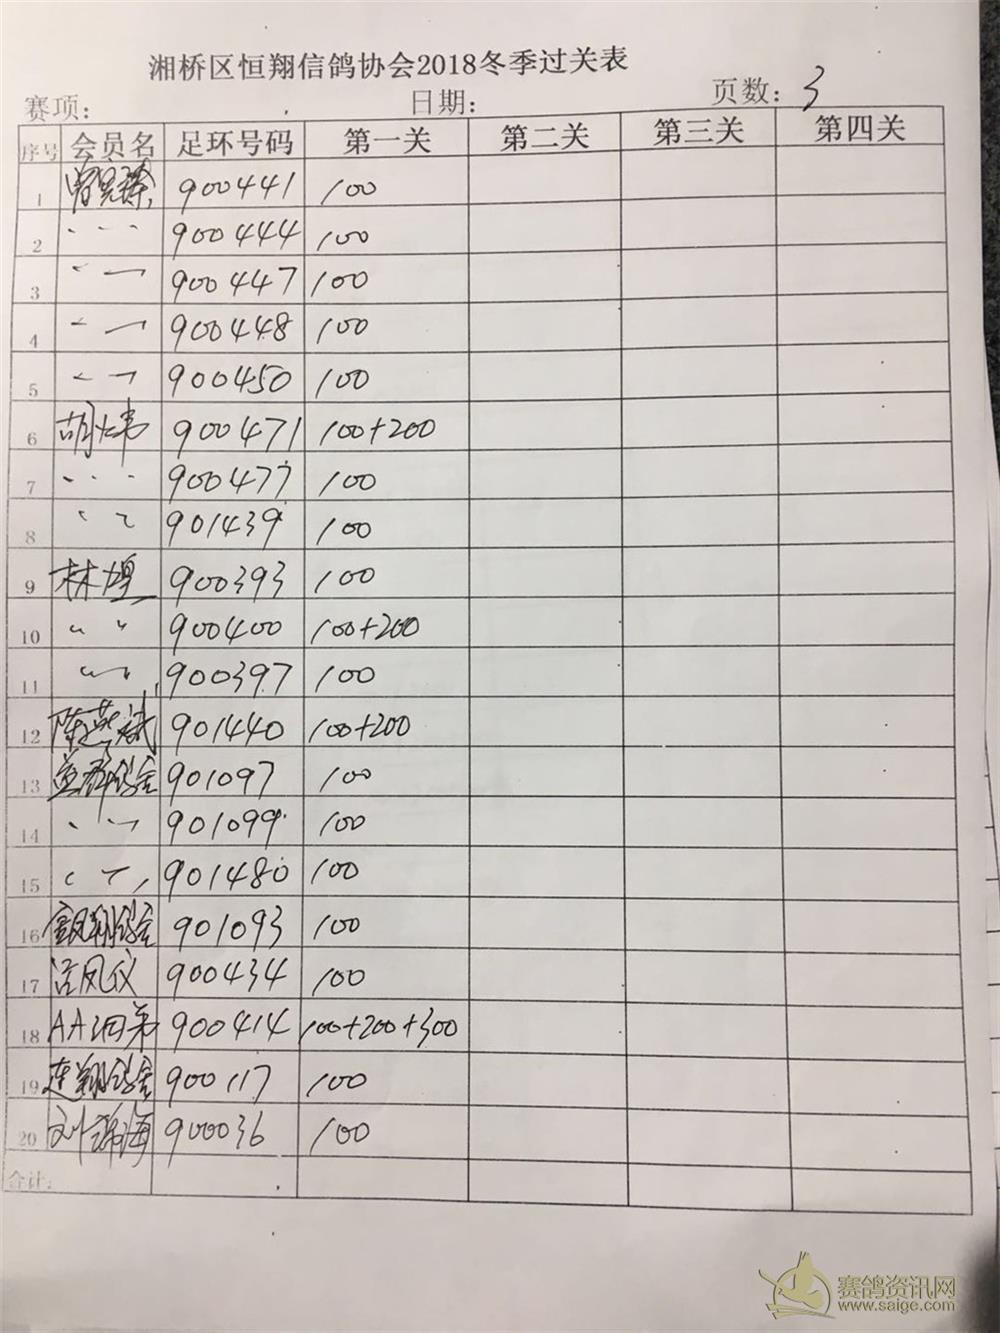 湘桥区恒翔信鸽协会2018冬季过关表
赛项： 日期： 页数：3
序号 会员名 足环号码 第一关 第二关 第三关 第四关
1 900441 100
2 〃 900444 100
3 〃 900447 100
4 〃 900448 100
5 〃 900450 100
6 胡炜 900471 100+200
7 〃 900477 100
8 〃 901439 100
9 林煌 900393 100
10 〃 900400 100+200
11 〃 900397 100
12 陈燕斌 901440 100+200
13 鸽舍 901097 100
14 〃 901099 100
15 〃 901480 100
16 凤翔鸽舍 901093 100
17 凤仪 900434 100
18 AA 弟 900414 100+200+300
19 翔鸽舍 900117 100
20 刘 海 900036 100
合计：
赛鸽资讯网
www.saige.com